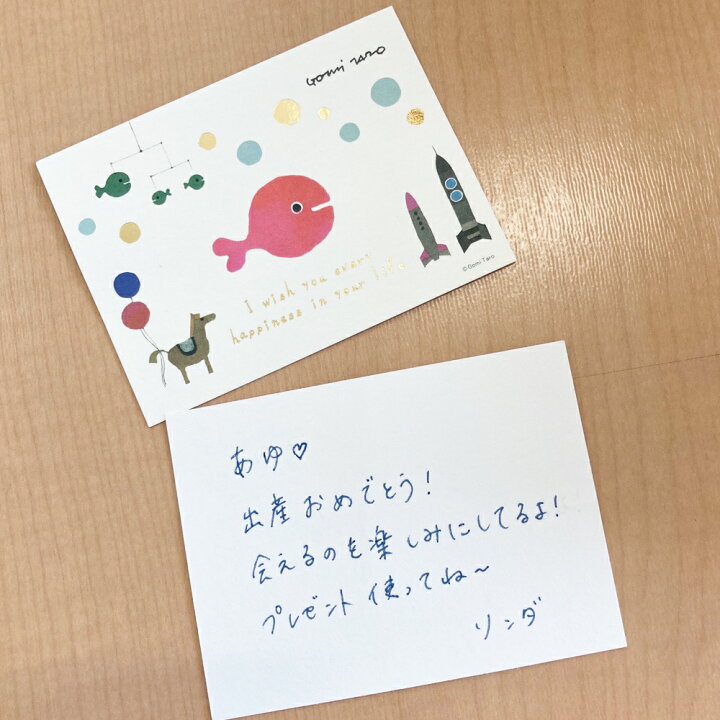 Gomi Taro
I wish you every
happiness in your life.
©Gomi Taro
あゆ♡
出産おめでとう!
会えるのを楽しみにしてるよ!
プレゼント使ってね〜
リンダ